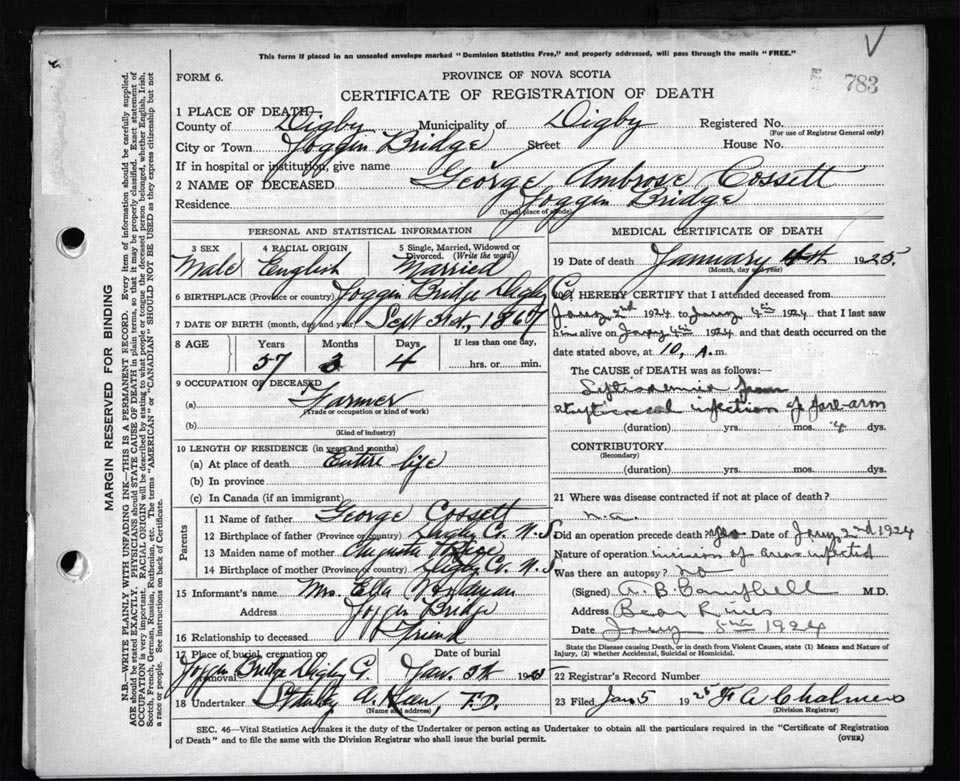 This form if placed in an unsealed envelope marked "Dominion Statistics Free," and properly addressed, will pass through the mails "FREE."
V
FORM 6.
PROVINCE OF NOVA SCOTIA
783
CERTIFICATE OF REGISTRATION OF DEATH
1 PLACE OF DEATH
County of Digby Municipality of Digby Registered No.
(For use of Registrar General only)
City or Town Joggin Bridge Street House No.
If in hospital or institution, give name
2 NAME OF DECEASED George Ambrose Cossett
Residence Joggin Bridge
(Usual place of abode)
PERSONAL AND STATISTICAL INFORMATION
3 SEX 4 RACIAL ORIGIN 5 Single, Married, Widowed or Divorced. (Write the word)
Male English Married
6 BIRTHPLACE (Province or country) Joggin Bridge Digby Co.
7 DATE OF BIRTH (month, day and year) Sept 3rd, 1867
8 AGE Years Months Days If less than one day,
57 3 4 hrs. or min.
9 OCCUPATION OF DECEASED
(a) Farmer
(Trade or occupation or kind of work)
(b)
(Kind of industry)
10 LENGTH OF RESIDENCE (in years and months)
(a) At place of death Entire life
(b) In province
(c) In Canada (if an immigrant)
Parents
11 Name of father George Cossett
12 Birthplace of father (Province or country) Digby Co. N.S.
13 Maiden name of mother Augusta
14 Birthplace of mother (Province or country) Digby Co. N.S
15 Informant's name Mrs. Ella Woodman
Address Joggin Bridge
16 Relationship to deceased Friend
17 Place of burial, cremation or removal Date of burial
Joggin Bridge Digby Co. Jan. 5th 19
18 Undertaker Stanley A. T.D.
(Name and address)
MEDICAL CERTIFICATE OF DEATH
19 Date of death January 4th 1925.
(Month, day and year)
20 I HEREBY CERTIFY that I attended deceased from
Jany 2nd 1924 to Jany 4th 1924 that I last saw
him alive on Jany 4th 1924, and that death occurred on the
date stated above, at 10, A.m.
The CAUSE of DEATH was as follows:—
infection of fore-arm
(duration) yrs. mos. 4 dys.
CONTRIBUTORY.
(Secondary)
(duration) yrs. mos. dys.
21 Where was disease contracted if not at place of death?
n.a.
Did an operation precede death yes Date of Jany 2nd 1924
Nature of operation incision of area infected
Was there an autopsy? no
(Signed) A. B. Campbell M.D.
Address Bear River
Date Jany 5th 1924
State the Disease causing Death, or in death from Violent Causes, state (1) Means and Nature of Injury, (2) whether Accidental, Suicidal or Homicidal.
22 Registrar's Record Number
23 Filed Jan 5 1925 A Chalmers
(Division Registrar)
SEC. 46—Vital Statistics Act makes it the duty of the Undertaker or person acting as Undertaker to obtain all the particulars required in the "Certificate of Registration
of Death" and to file the same with the Division Registrar who shall issue the burial permit. (OVER)
MARGIN RESERVED FOR BINDING
N.B.—WRITE PLAINLY WITH UNFADING INK—THIS IS A PERMANENT RECORD. Every item of information should be carefully supplied.
AGE should be stated EXACTLY. PHYSICIANS should STATE CAUSE OF DEATH in plain terms, so that it may be properly classified. Exact statement of
OCCUPATION is very important. RACIAL ORIGIN will be described by stating to what people or tongue the deceased person belonged, whether English, Irish,
Scotch, French, German, Russian, Ruthenian, etc. The terms "AMERICAN" or "CANADIAN" SHOULD NOT BE USED as they express citizenship but not
a race or people. See instructions on back of Certificate.